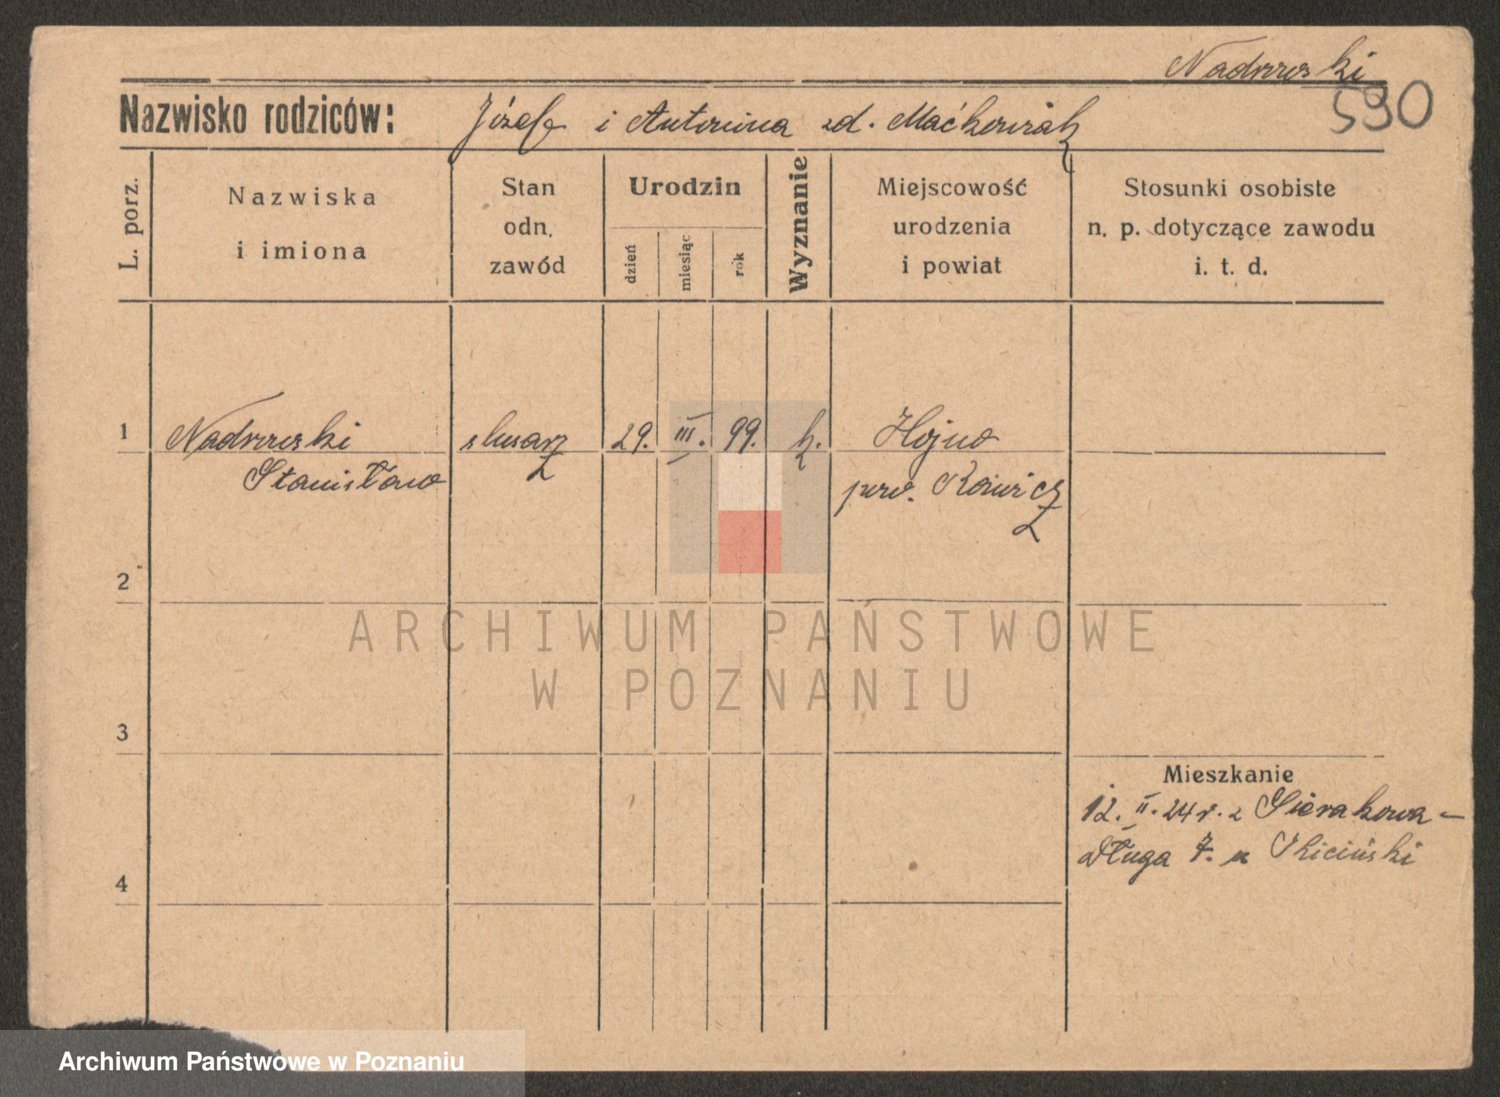 Nadrzewski
590
Nazwisko rodziców: Józef i Antonina zd. Maćkowiak
L. porz.
Nazwiska i imiona
Stan odn. zawód
Urodzin
dzień
miesiąc
rok
Wyznanie
Miejscowość urodzenia i powiat
Stosunki osobiste n. p. dotyczące zawodu i. t. d.
1
Stanisław
ślusarz
29. III. 99.
k.
Hojno
pow. Rawicz
2
3
4
Mieszkanie
12. II. 24 r. z Sierakowa –
Długa 7. u
ARCHIWUM PAŃSTWOWE
W POZNANIU
Archiwum Państwowe w Poznaniu